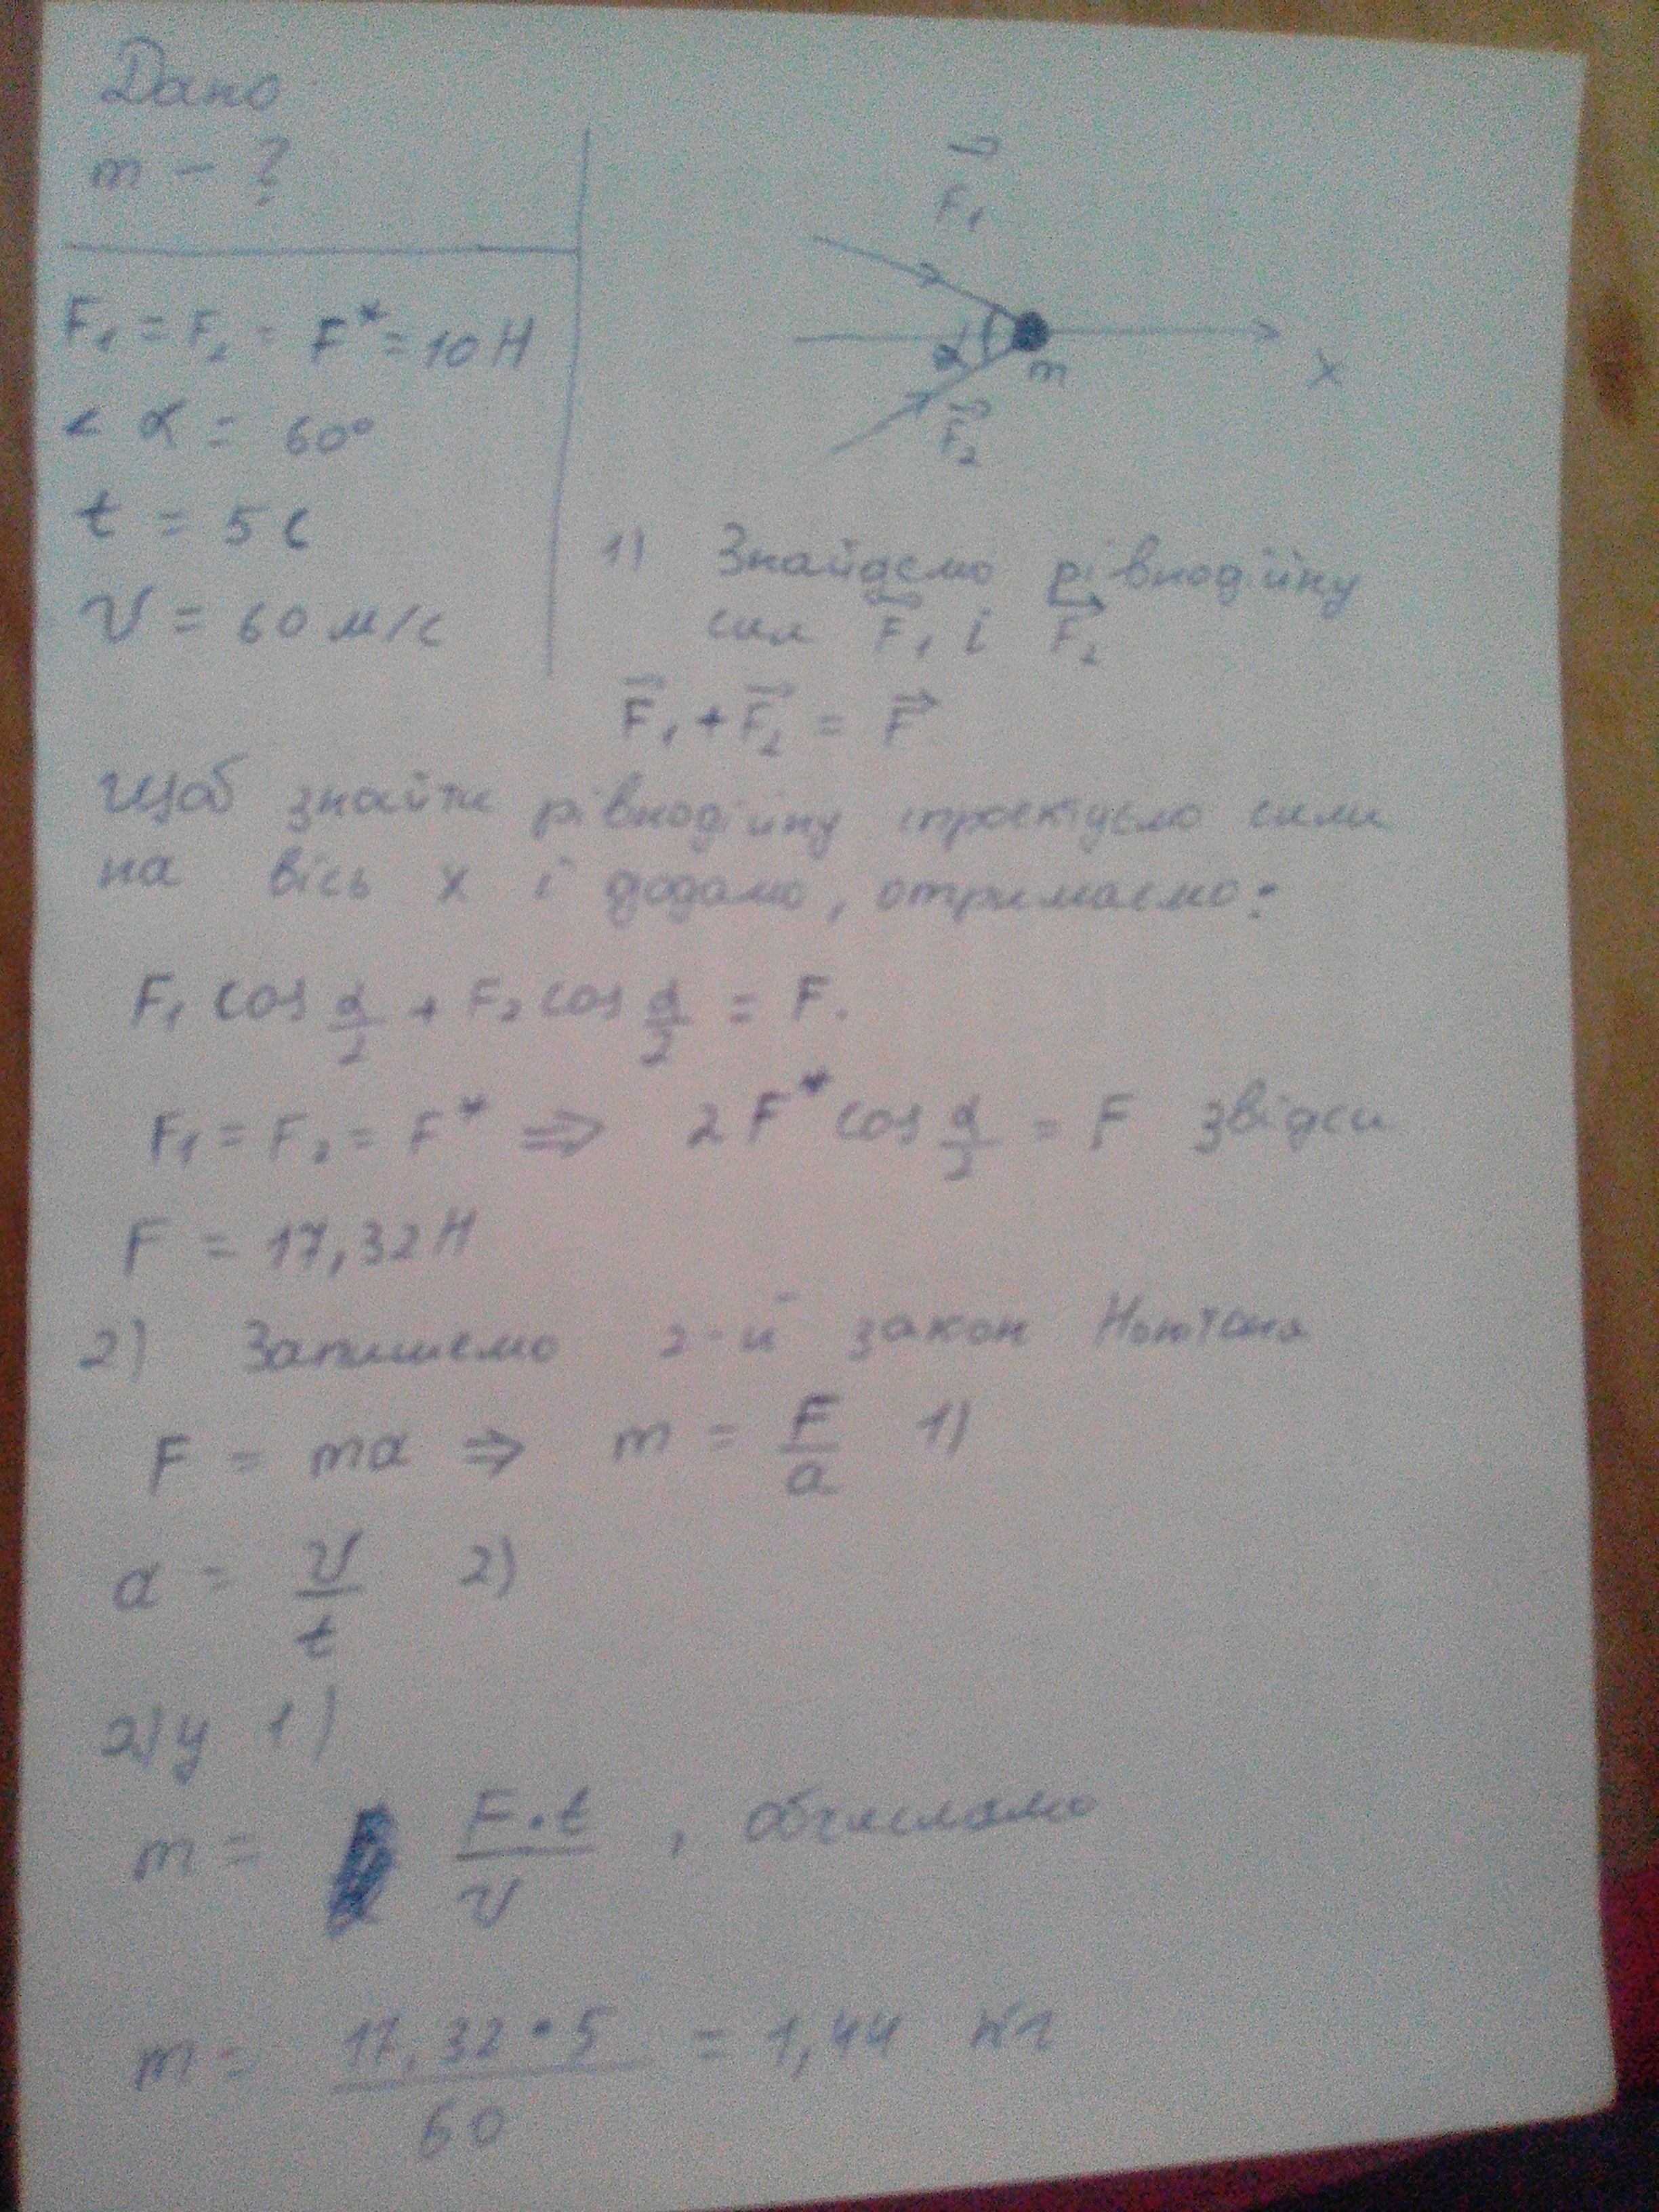 Дано
m - ?
F₁ = F₂ = F* = 10 Н
< α = 60°
t = 5 с
v = 60 м/с
F₁
α
m
x
F₂
1) Знайдемо рівнодійну
сил F₁ і F₂
F₁ + F₂ = F
Щоб знайти рівнодійну спроектуємо сили
на вісь x і додамо, отримаємо:
F₁ cos α/2 + F₂ cos α/2 = F.
F₁ = F₂ = F* ⇒ 2F* cos α/2 = F звідси
F = 17,32 Н
2) Запишемо 2-й закон Ньютона
F = ma ⇒ m = F/a 1)
a = v/t 2)
2) у 1)
m = F·t/v , обчислимо
m = 17,32·5/60 = 1,44 кг